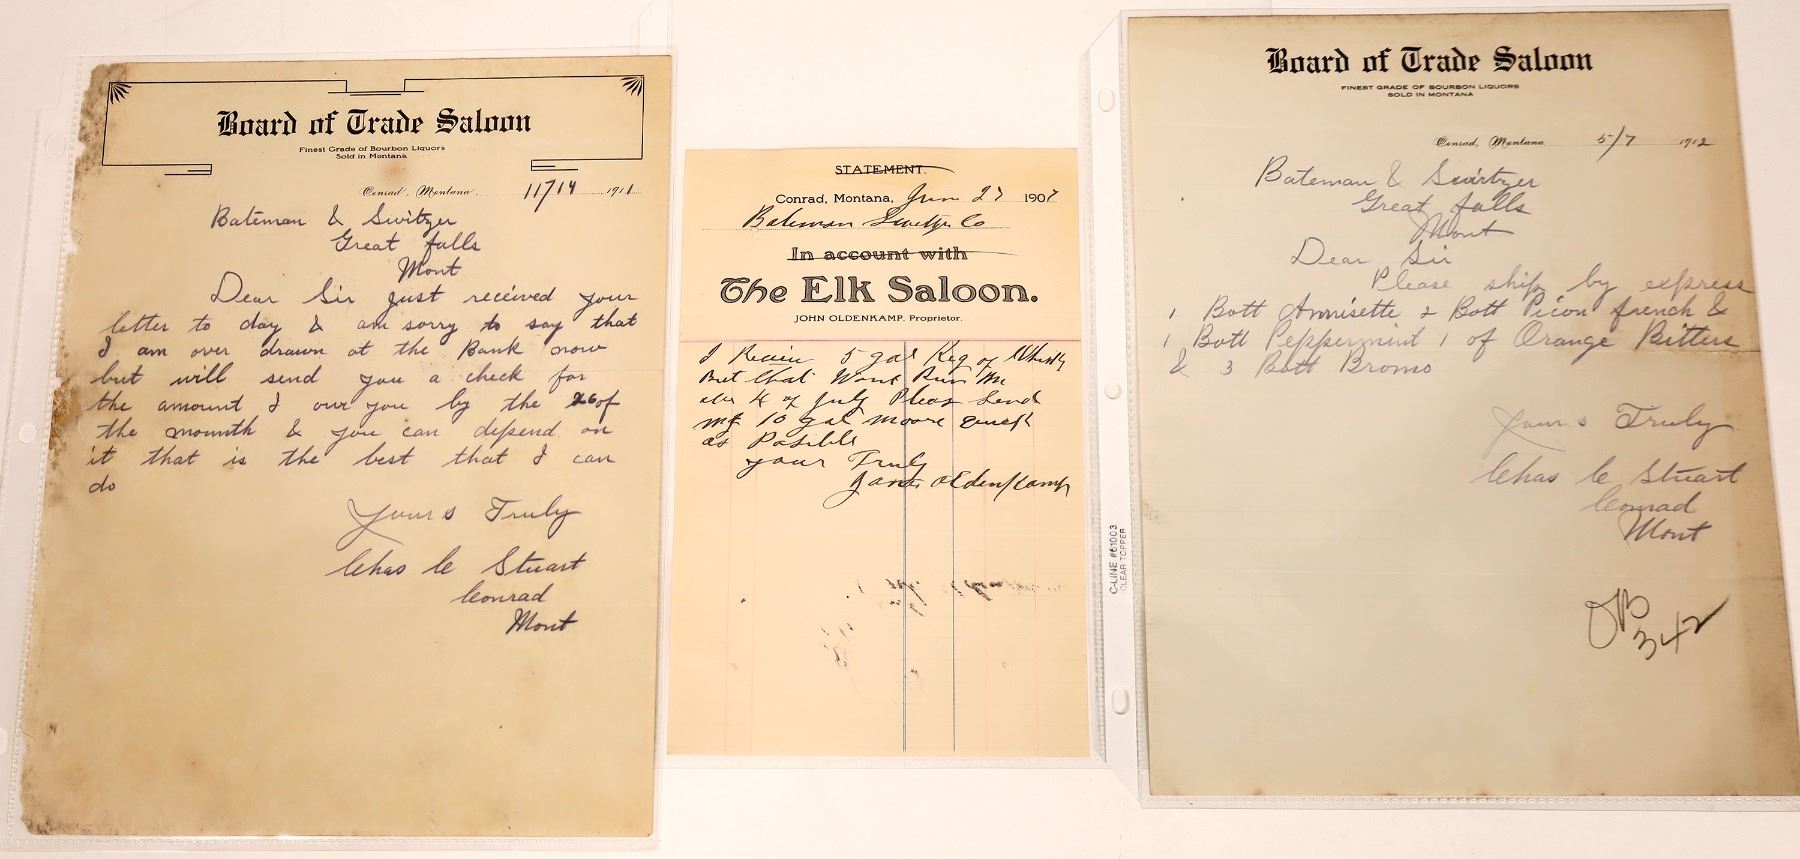 Board of Trade Saloon
Finest Grade of Bourbon Liquors
Sold in Montana
Conrad, Montana, 11/14 1911
Bateman & Switzer
Great falls
Mont
Dear Sir Just received your
letter to day & am sorry to say that
I am over drawn at the Bank now
but will send you a check for
the amount I owe you by the 26 of
the mounth & you can depend on
it that is the best that I can
do
Yours Truly
Chas C Stuart
Conrad
Mont
STATEMENT.
Conrad, Montana, Jun 27 1907
Bateman Switzer Co
In account with
The Elk Saloon.
JOHN OLDENKAMP, Proprietor.
I 5 gal Keg of
But that Wont Run Me
4 of July Pleas Send
me 10 gal moore
as Posible
your Truly
Oldenkamp
C-LINE #61003
CLEAR TOPPER
Board of Trade Saloon
FINEST GRADE OF BOURBON LIQUORS
SOLD IN MONTANA
Conrad, Montana 5/7 1912
Bateman & Switzer
Great falls
Mont
Dear Sir
Please ship by express
1 Bott Annisette 2 Bott Picon french &
1 Bott Peppermint 1 of Orange Bitters
& 3 Bott Bromo
Yours Truly
Chas C Stuart
Conrad
Mont
342